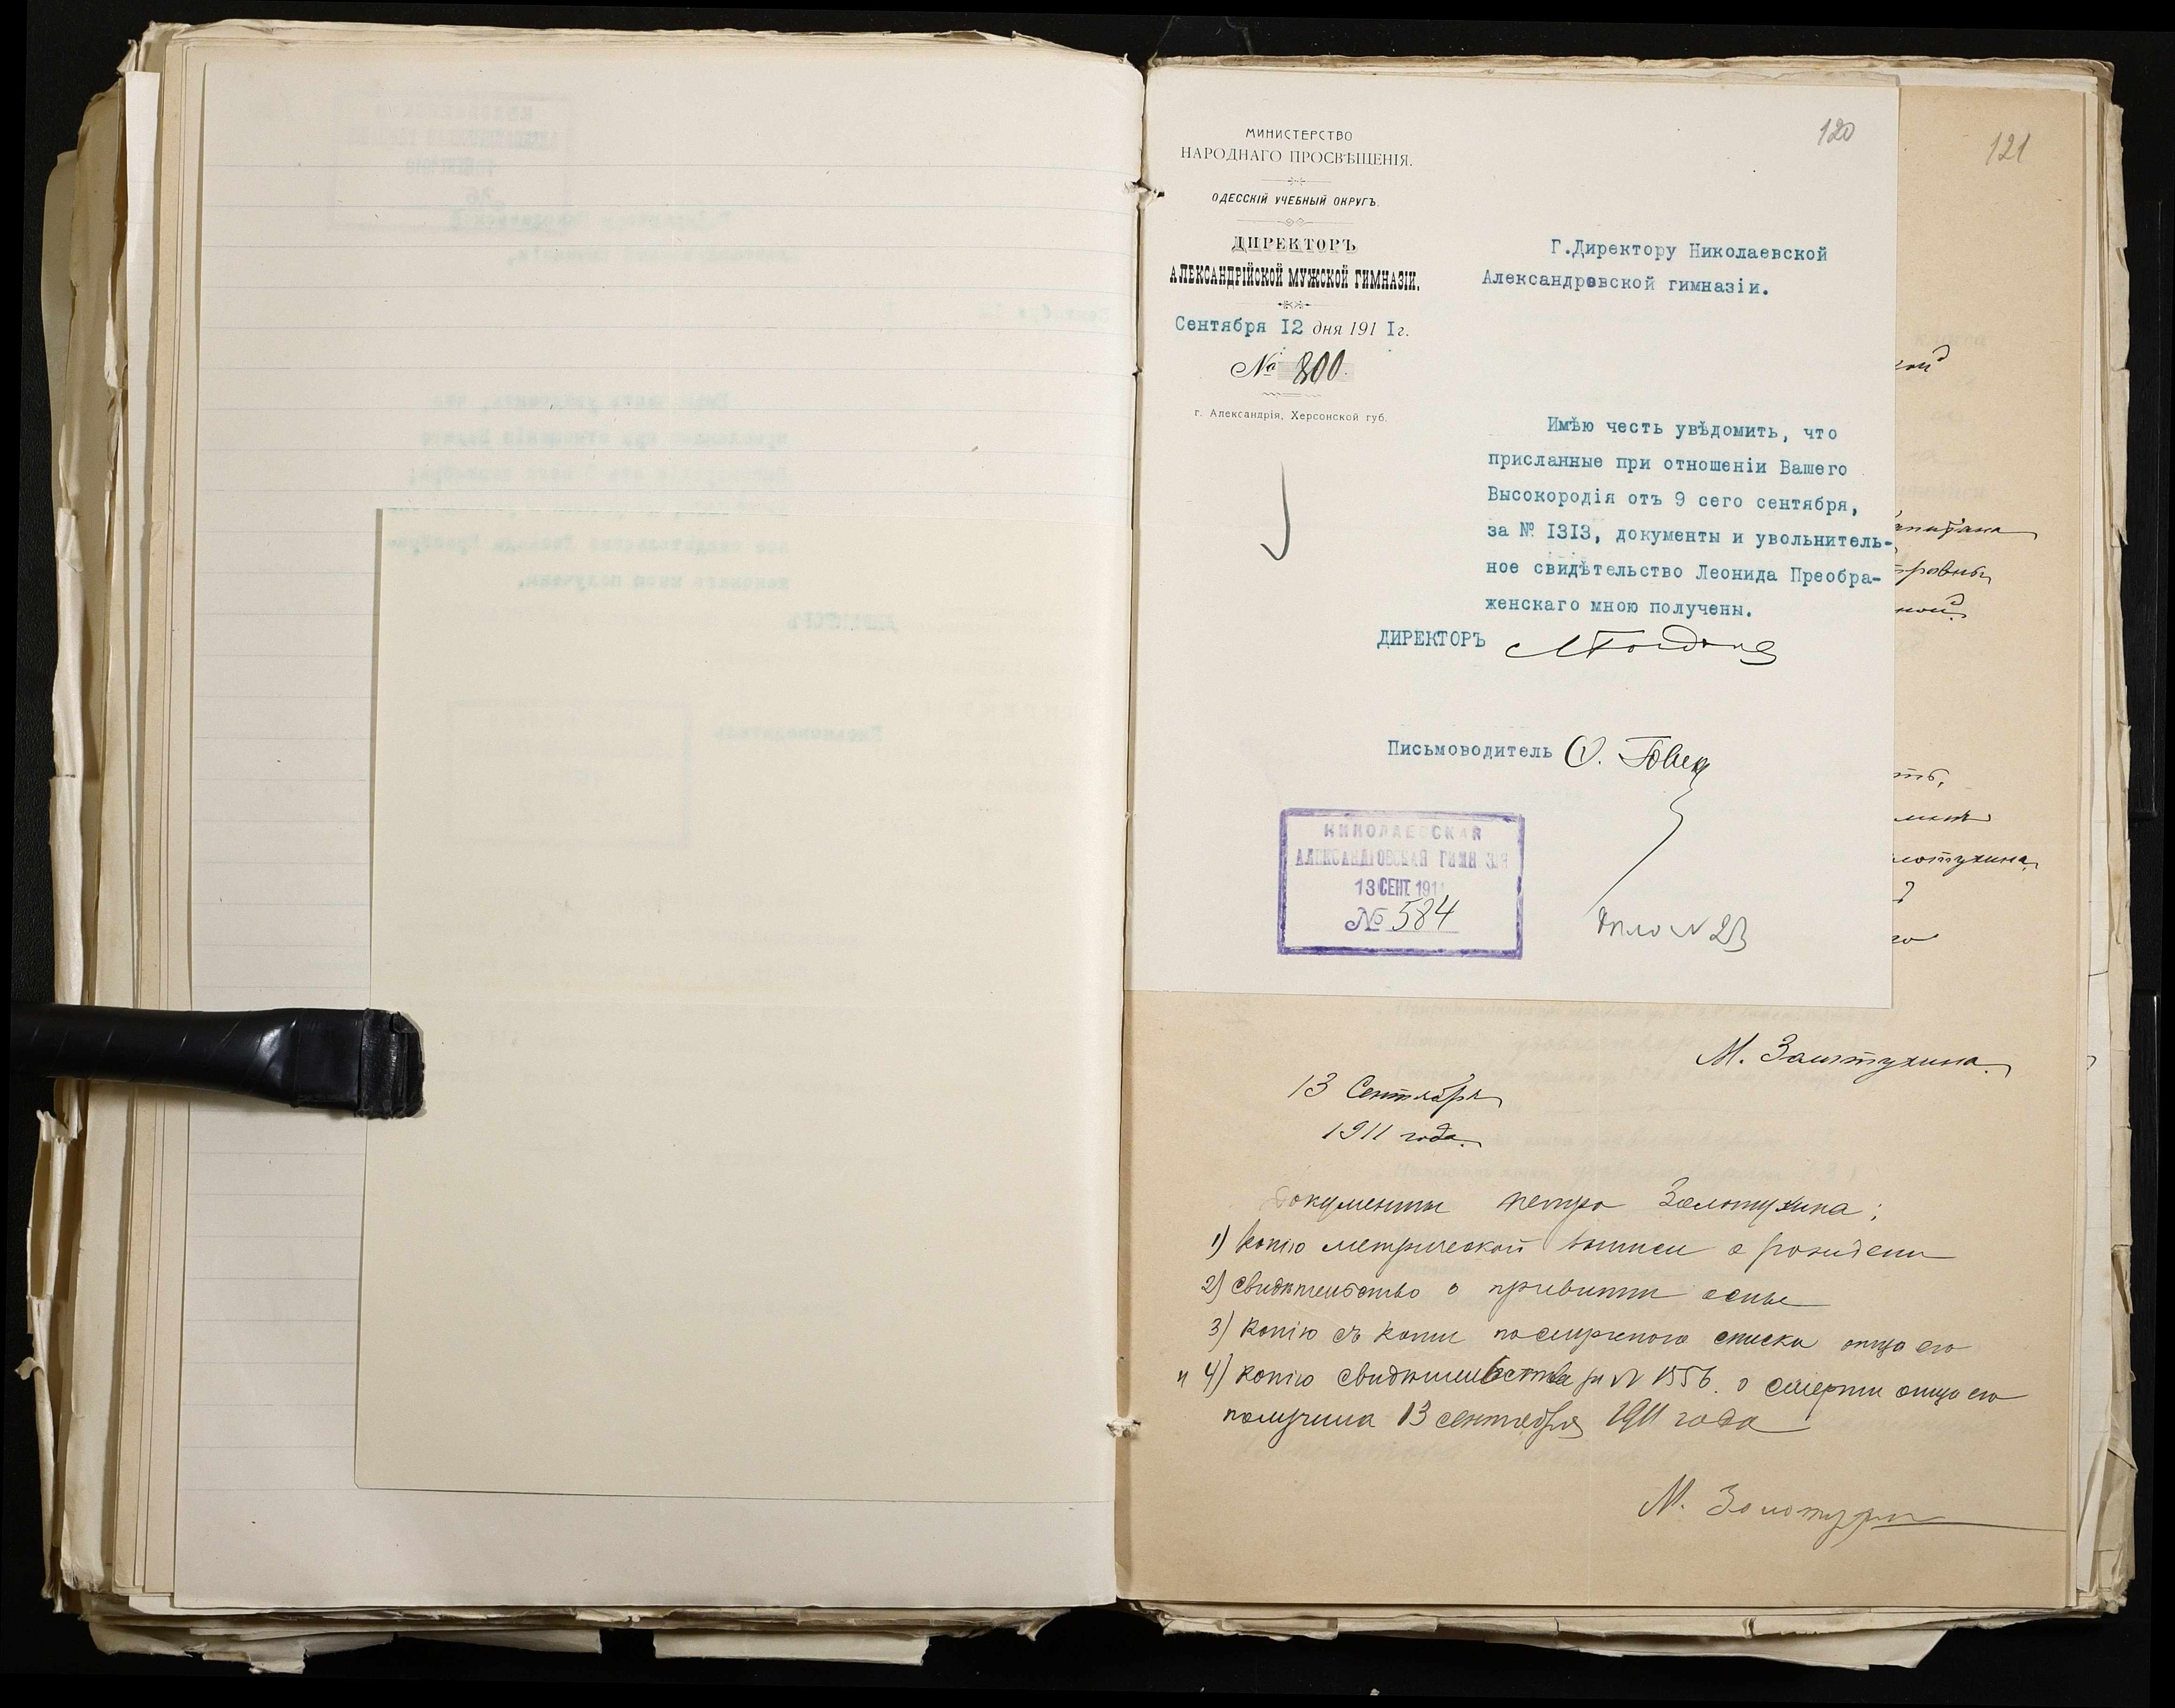 120
121
МИНИСТЕРСТВО
НАРОДНАГО ПРОСВѢЩЕНІЯ.
ОДЕССКІЙ УЧЕБНЫЙ ОКРУГЪ.
ДИРЕКТОРЪ
АЛЕКСАНДРІЙСКОЙ МУЖСКОЙ ГИМНАЗІИ.
Сентября 12 дня 191 I г.
№ 800.
г. Александрія, Херсонской губ.
Г.Директору Николаевской
Александровской гимназіи.
Имѣю честь увѣдомить, что
присланные при отношеніи Вашего
Высокородія отъ 9 сего сентября,
за № I3I3, документы и увольнитель-
ное свидѣтельство Леонида Преобра-
женскаго мною получены.
ДИРЕКТОРЪ
Письмоводитель
НИКОЛАЕВСКАЯ
АЛЕКСАНДРОВСКАЯ ГИМНАЗІЯ
13 СЕНТ. 1911
№ 584
М. Золотухина
13 Сентября
1911 года.
Документы Петра Золотухина:
1) копію метрической выписи о рожденіи
2) свидѣтельство о привитіи оспы
3) копію съ копіи послужного списка отца его
и 4) копію свидѣтельства за № 1556. о смерти отца его
получила 13 сентября 1911 года
М. Золотухина